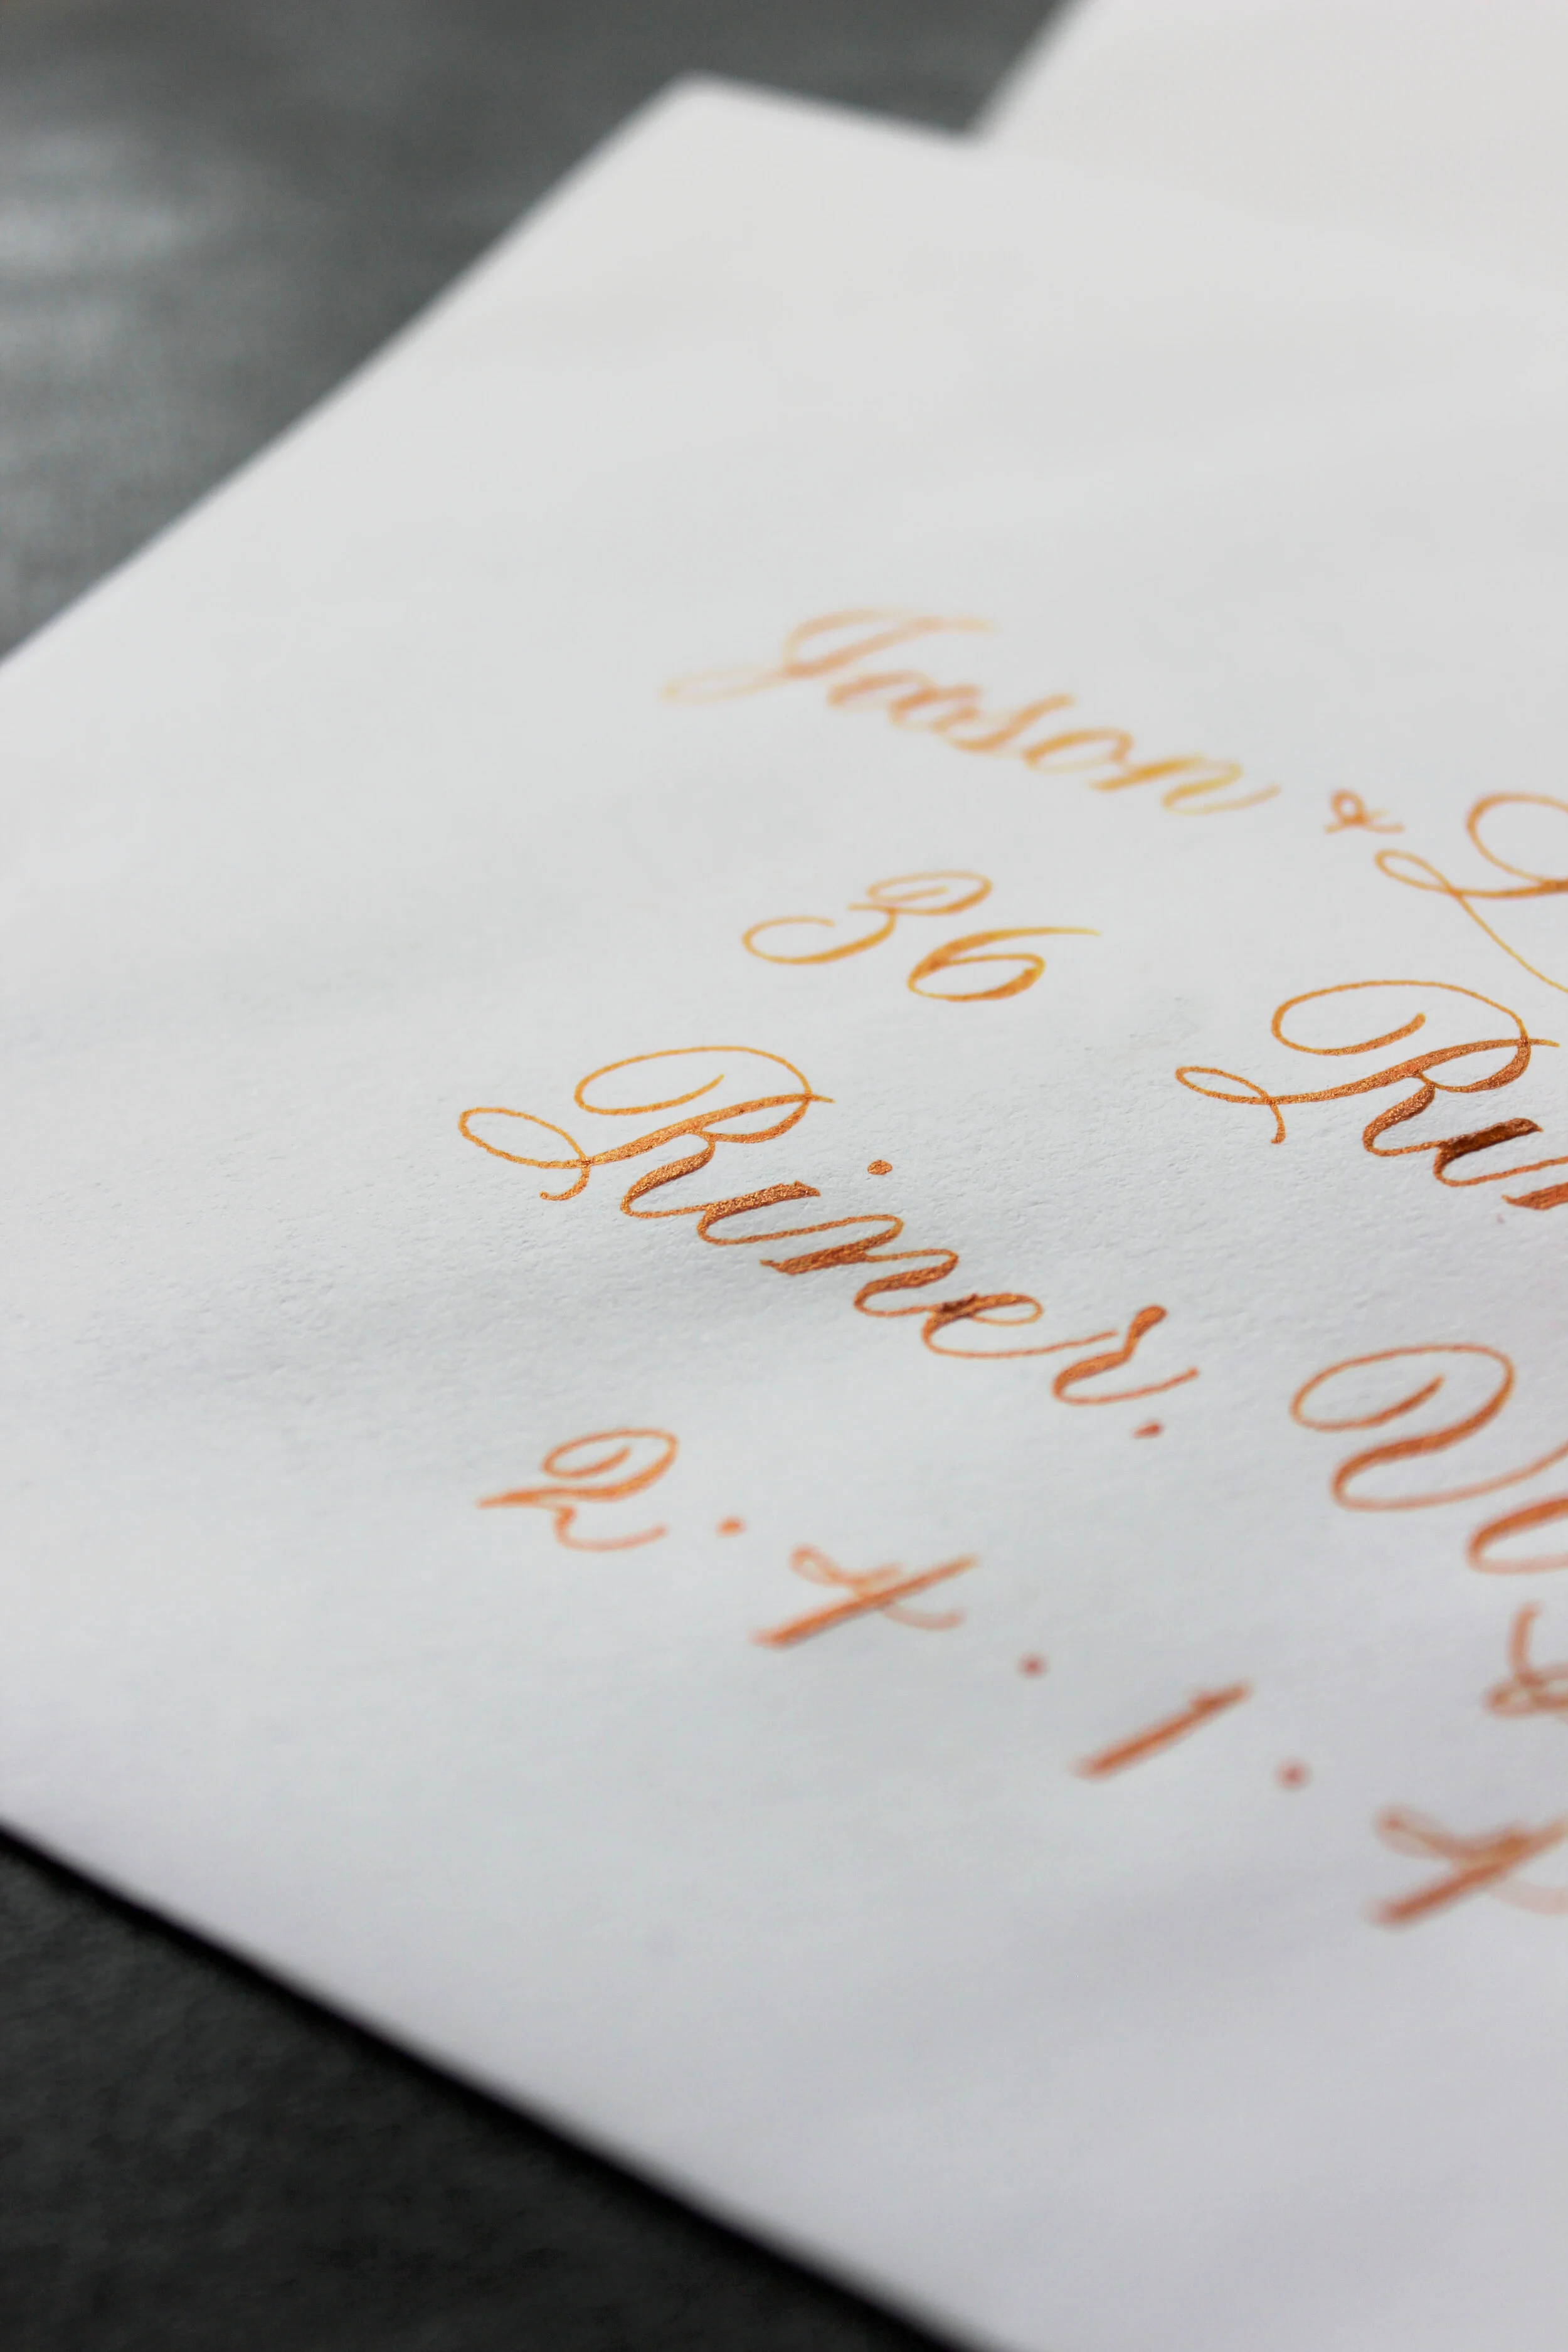 Jason &
36 Ru
Riner. V
2.4.1.4